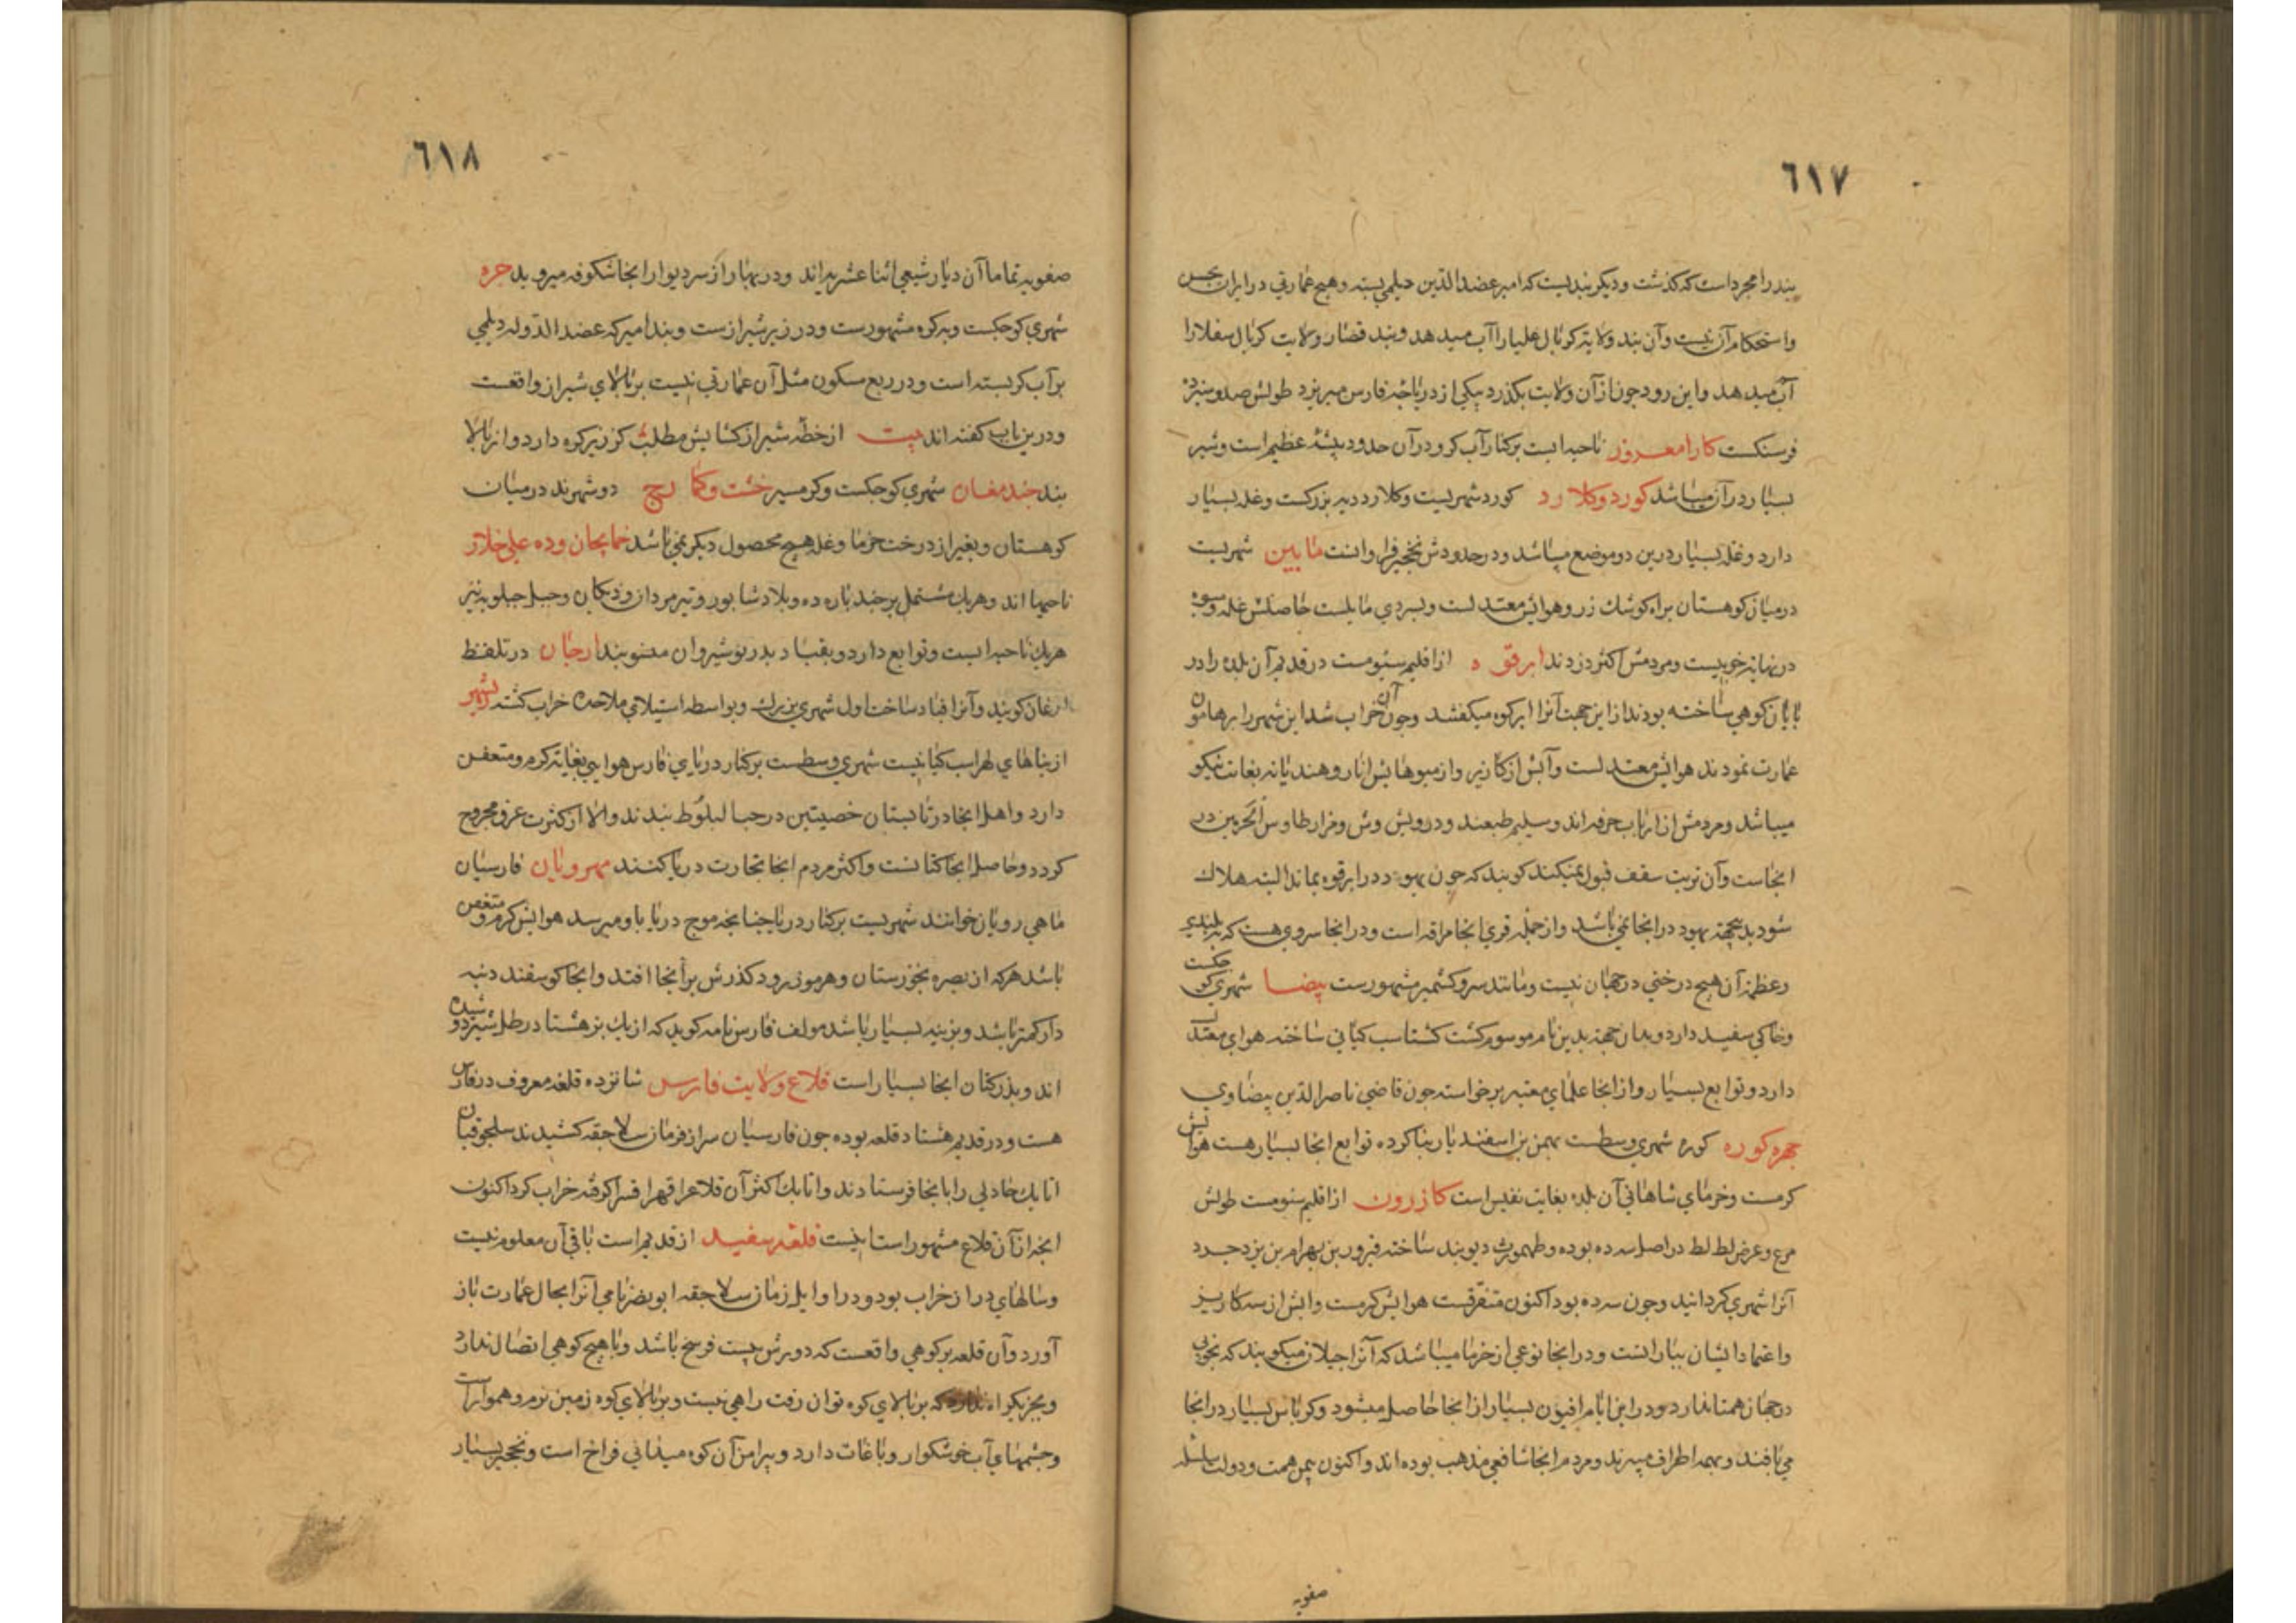 ٦١٧
بند را مجرد است که کذشت و دیکر بندیست که امیر عضد الدین دیلمی بسته و هیچ عمارتی در ایران بحسن
و استحکام آن نیست و آن بند ولایة کربال علیا را آب میدهد و بند قصار ولایت کربال سفلا را
آب میدهد و این رود چون از آن ولایت بکذرد بیکی از دریاچه فارس میریزد طولش صد و سیزده
فرسنکست کارا معرور ناحیه ایست برکنار آب کر و در آن حدود بیشهٔ عظیم است و شیر
بسیار در آن میباشد کورد و کلارد کورد شهریست و کلارد دیه بزرکست و غله بسیار
دارد و غله بسیار درین دو موضع میباشد و در حدودش نخجیر فراوانست مابین شهریست
در میان کوهستان براه کوشک زر و هوایش معتدلست و بسردی مایلست حاصلش غله و میوه
در نهایة خوبیست و مردمش اکثر دزدند ابرقوه از اقلیم سیومست در قدیم آن بلده را در
پایان کوهی ساخته بودند از این جهت آنرا ابرکوه میکفتند و چون آن خراب شد این شهر را برهامون
عمارت نمودند هوایش معتدلست و آبش از کاریز و از میوهایش انار و هندیانه بغایت نیکو
میباشد و مردمش از ارباب حرفه اند و سلیم طبعند و درویش وش و مزار طاوس الحرمین در
انجاست و آن تربت سقف قبول نمیکند کویند که چون یهود در ابرقوه بماند البته هلاک
شود بدین جهة یهود در انجا نمی باشد و از جمله قری انجا مراقه است و در انجا سروی هست که به بلندی
و عظمت آن هیچ درختی در جهان نیست و مانند سرو کشمیر مشهورست بیضا شهری کوچکست
و خاکی سفید دارد و بدان جهة بدین نام موسوم کشت کشتاسب کیانی ساخته هوای معتدل
دارد و توابع بسیار و از انجا علمای معتبر برخواسته چون قاضی ناصر الدین بیضاوی
جهره کوره کوره شهری وسطست بهمن بن اسفندیار بنا کرده توابع انجا بسیار هست هوایش
کرمست و خرمای شاهانی آن بلده بغایت نفیس است کازرون از اقلیم سیومست طولش
مرع و عرض لط لط در اصل سه ده بوده و طهمورث دیوبند ساخته فیروز بن بهرام بن یزدجرد
آنرا شهری کردانید و چون سه ده بود اکنون متفرقست هوایش کرمست و ابش از سه کاریز
و اعتماد ایشان ببارانست و در انجا نوعی از خرما میباشد که آنرا جیلان میکویند که بخوبی
در جهان همتا ندارد و در این ایام افیون بسیار از انجا حاصل میشود و کرباس بسیار در انجا
می بافند و بهمه اطراف میبرند و مردم انجا شافعی مذهب بوده اند و اکنون بیمن همت و دولت سلسله
صفویه
٦١٨
صفویه تماما آن دیار شیعی اثنا عشریه اند و در بهار از سر دیوار انجا شکوفه میروید جره
شهری کوچکست و به کره مشهورست و در زیر شیرازست و بند امیر که عضد الدوله دیلمی
بر آب کر بسته است و در ربع مسکون مثل آن عمارتی نیست بر بالای شیراز واقعست
و درین باب کفته اند بیت از خطهٔ شیراز کشایش مطلب کز زیر کره دارد و از بالا
بند جند مغان شهری کوچکست و کرمسیر خشت و کمارج دو شهرند در میان
کوهستان و بغیر از درخت خرما و غله هیچ محصول دیکر نمی باشد خمایجان و ده علی خلار
ناحیها اند و هریک مشتمل بر چند پاره ده و بلاد شابور و تیرمردان و دیکان و جبل جیلویه نیز
هریک ناحیه ایست و توابع دارد و بقباد پدر نوشیروان منسوبند ارجان در تلفظ
ارغان کویند و آنرا قباد ساخت اول شهری بزرک و بواسطه استیلای ملاحده خراب کشته
از بناهای لهراسب کیانیست شهری وسطست برکنار دریای فارس هوایی بغایة کرم و متعفن
دارد و اهل انجا در تابستان خصیتین در جبا لبلوط بندند و الا از کثرت عرق مجروح
کردد و حاصل انجا کتانست و اکثر مردم انجا تجارت دریا کنند مهرویان فارسیان
ماهی رویان خوانند شهریست برکنار دریا چنانچه موج دریا باو میرسد هوایش کرم و متعفن
باشد هرکه از بصره بخوزستان و هرموز رود کذرش بر انجا افتد و انجا کوسفند دنبه
دار کمتر باشد و بزینه بسیار باشد مولف فارس نامه کوید که از یک بز هشتاد رطل شیر دوشیده
اند و بذر کتان انجا بسیار است قلاع ولایت فارس شانزده قلعه معروف در فارس
هست و در قدیم هشتاد قلعه بوده چون فارسیان سر از فرمان سلاجقه کشیدند سلجوقیان
اتابک جادلی را بانجا فرستادند و اتابک اکثر آن قلاع را قهرا قسرا کوفته خراب کرد اکنون
انچه از آن قلاع مشهور است اینست قلعه سفید از قدیم است بانی آن معلوم نیست
و سالهای دراز خراب بود و در اوایل زمان سلاجقه ابو نصر نامی آنرا بحال عمارت باز
آورد و آن قلعه بر کوهی واقعست که دورش بیست فرسخ باشد و با هیچ کوهی اتصال ندارد
و بجز یکراه ندارد که بر بالای کوه توان رفت راهی نیست و بر بالای کوه زمین نرم و هموار است
و چشمهای آب خوشکوار و باغات دارد و پیرامن آن کوه میدانی فراخ است و نخجیر بسیار